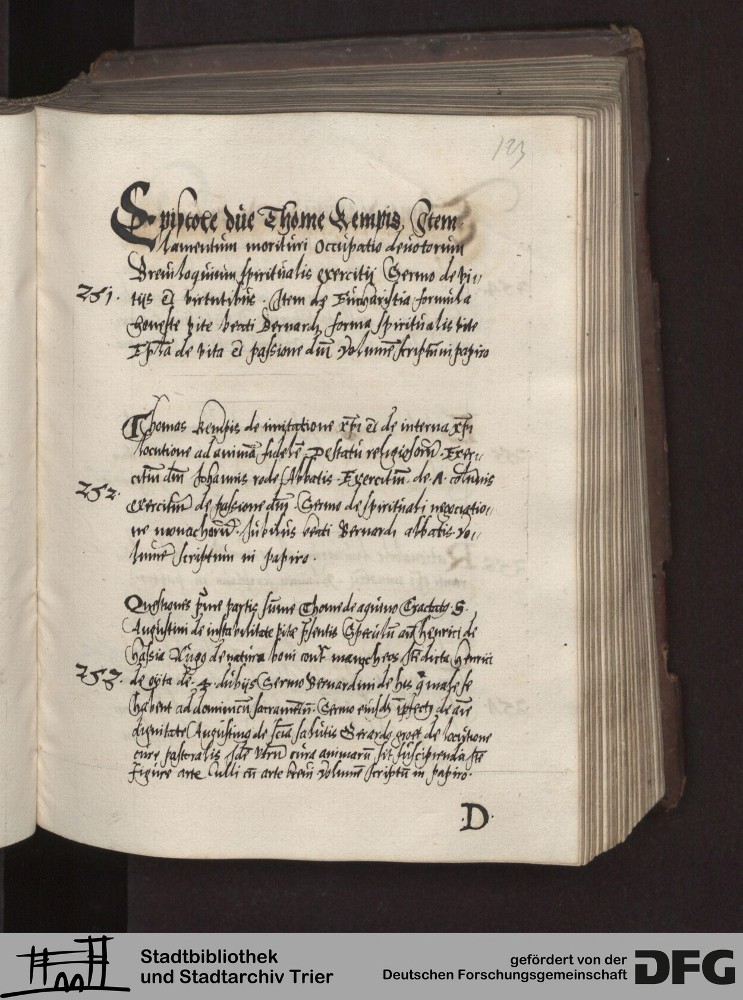 123
Epistole due Thome Kempis, Item
lamentum morituri Occupatio deuotorum
Breuiloquium spiritualis exercitij Sermo de vi„
251. tijs et virtutibus. Item de Eucharistia formula
honeste vite beati Bernardi forma spiritualis vite
de vita et passione dni volume scriptu in papiro
Thomas Kempis de imitatione xpi et de interna xpi
locutione ad anima fidele De statu religiosoru. Exer„
citiu dni Johannis rode Abbatis. Exercitiu. de A.
252. exercitiu de passione dni. Sermo de spirituali negociatio„
ne monachoru. Jubilus beati Bernardi abbatis vo„
lume scriptum in papiro.
Questiones partis sume Thome de aquino Tractatus S.
Augustini de instabilitate vite psentis Speculu henrici de
hassia Hugo de natura boni mancheos dicta Henrici
253. de oyta de. 4. dubijs Sermo Bernardini de his q male se
habent ad dominicu sacrametu. Sermo eiusde de
dignitate Augustinus de salutis Gerardi groet de locutione
cure pastoralis vtru cura animaru sit suscipienda
figure arte lulli cu arte breui volume scriptu in papiro.
D.
Stadtbibliothek
und Stadtarchiv Trier
gefördert von der
Deutschen Forschungsgemeinschaft
DFG